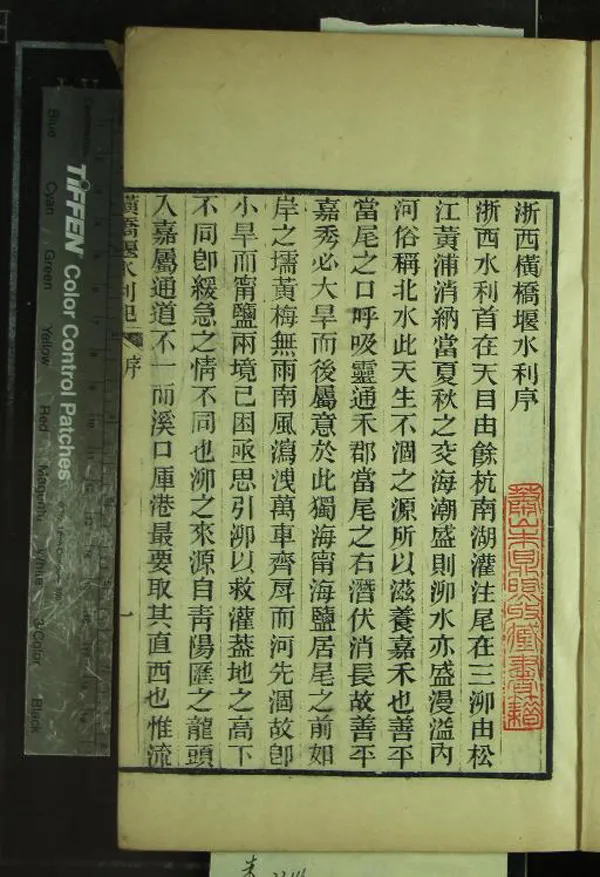 浙西橫橋堰水利序
浙西水利首在天目由餘杭南湖灌注尾在三泖由松
江黃浦消納當夏秋之交海潮盛則泖水亦盛漫溢內
河俗稱北水此天生不涸之源所以滋養嘉禾也善平
當尾之口呼吸靈通禾郡當尾之右潛伏消長故善平
嘉秀必大旱而後屬意於此獨海甯海鹽居尾之前如
岸之壖黃梅無雨南風瀉洩萬車齊戽而河先涸故卽
小旱而甯鹽兩境已困亟思引泖以救灌葢地之高下
不同卽緩急之情不同也泖之來源自青陽匯之龍頭
入嘉屬通道不一而溪口厙港最要取其直西也惟流
橫橋堰水利記 序
一
蕭山朱鼎煦收藏書籍
TIFFEN Color Control Patches
Blue
Cyan
Green
Yellow
Red
Magenta
White
3/Color
Black